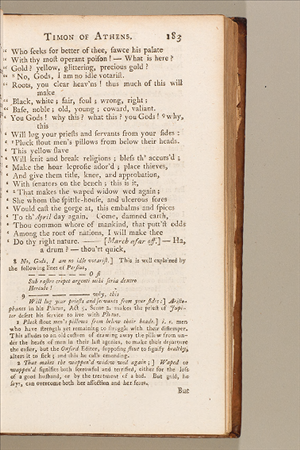 TIMON OF ATHENS. 183
Who seeks for better of thee, sawce his palate
With thy most operant poison! — What is here?
Gold? yellow, glittering, precious gold?
No, Gods, I am no idle votarist.
Roots, you clear heav'ns! thus much of this will
make
Black, white; fair, foul; wrong, right;
Base, noble; old, young; coward, valiant.
You Gods! why this? what this? you Gods! why,
this
Will lug your priests and servants from your sides:
Pluck stout men's pillows from below their heads.
This yellow slave
Will knit and break religions; bless th' accurs'd;
Make the hoar leprosie ador'd; place thieves,
And give them title, knee, and approbation,
With senators on the bench; this is it,
That makes the waped widow wed again;
She whom the spittle-house, and ulcerous sores
Would cast the gorge at, this embalms and spices
To th' April day again. Come, damned earth,
Thou common whore of mankind, that putt'st odds
Among the rout of nations, I will make thee
Do thy right nature. —— [March afar off.] — Ha,
a drum? — thou'rt quick,
8 No, Gods, I am no idle votarist.] This is well explained by
the following lines of Persius,
O si
Sub rastro crepet argenti mihi seria dextro
Hercule!
9 why, this
Will lug your priests and servants from your sides:] Aristo-
phanes in his Plutus, Act 5. Scene 2. makes the priest of Jupi-
ter desert his service to live with Plutus.
1 Pluck stout men's pillows from below their heads] i. e. men
who have strength yet remaining to struggle with their distemper.
This alludes to an old custom of drawing away the pillow from un-
der the heads of men in their last agonies, to make their departure
the easier, but the Oxford Editor, supposing stout to signify healthy,
alters it to sick; and this he calls emending.
2 That makes the wapped widow wed again;] Waped or
wapped signifies both sorrowful and terrified, either for the loss
of a good husband, or by the treatment of a bad. But gold, he
says, can overcome both her affection and her fears.
But